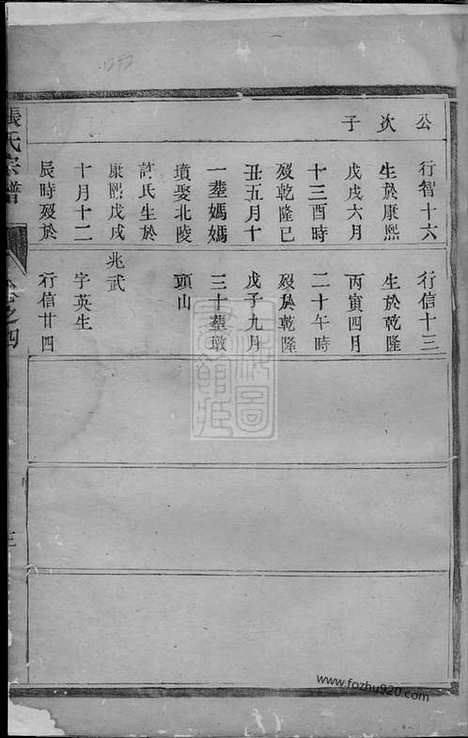 公次子
行智十六
生於康熙
戊戌六月
十三酉時
歿乾隆己
丑五月十
一塟媽媽
墳娶北陵
許氏生於
康熙戊戌
十月十二
辰時歿於
行信十三
生於乾隆
丙寅四月
二十午時
歿於乾隆
戊子九月
三十塟墩
頭山
兆武
字英生
行信廿四
張氏宗譜
卷之四
三
www.fozhu920.com